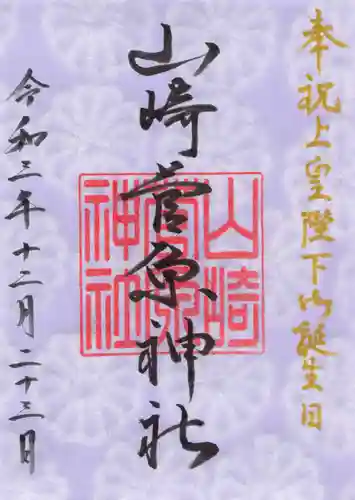 奉祝上皇陛下御誕生日
山崎菅原神社
山崎菅原神社
令和三年十二月二十三日